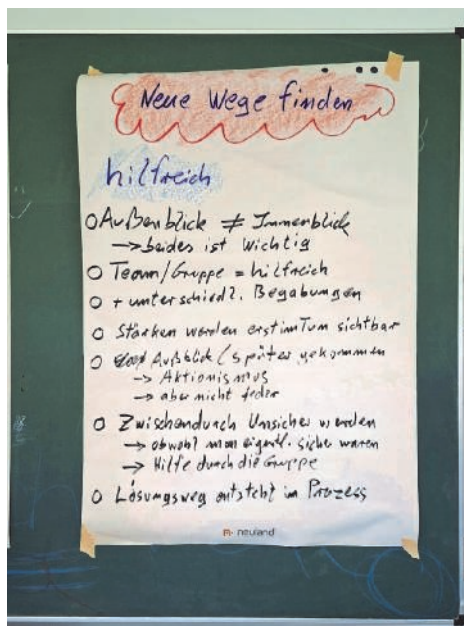 Neue Wege finden
hilfreich
O Außenblick ≠ Innenblick
→ beides ist Wichtig
O Team/Gruppe = hilfreich
O + unterschiedl. Begabungen
O Stärken werden erst im Tum sichtbar
O Ausblick (später gekommen
→ Aktionismus
→ aber nicht jeder
O Zwischendurch Unsicher werden
→ obwohl man eigentl. sicher waren
→ Hilfe durch die Gruppe
O Lösungsweg entsteht im Prozess
neuland